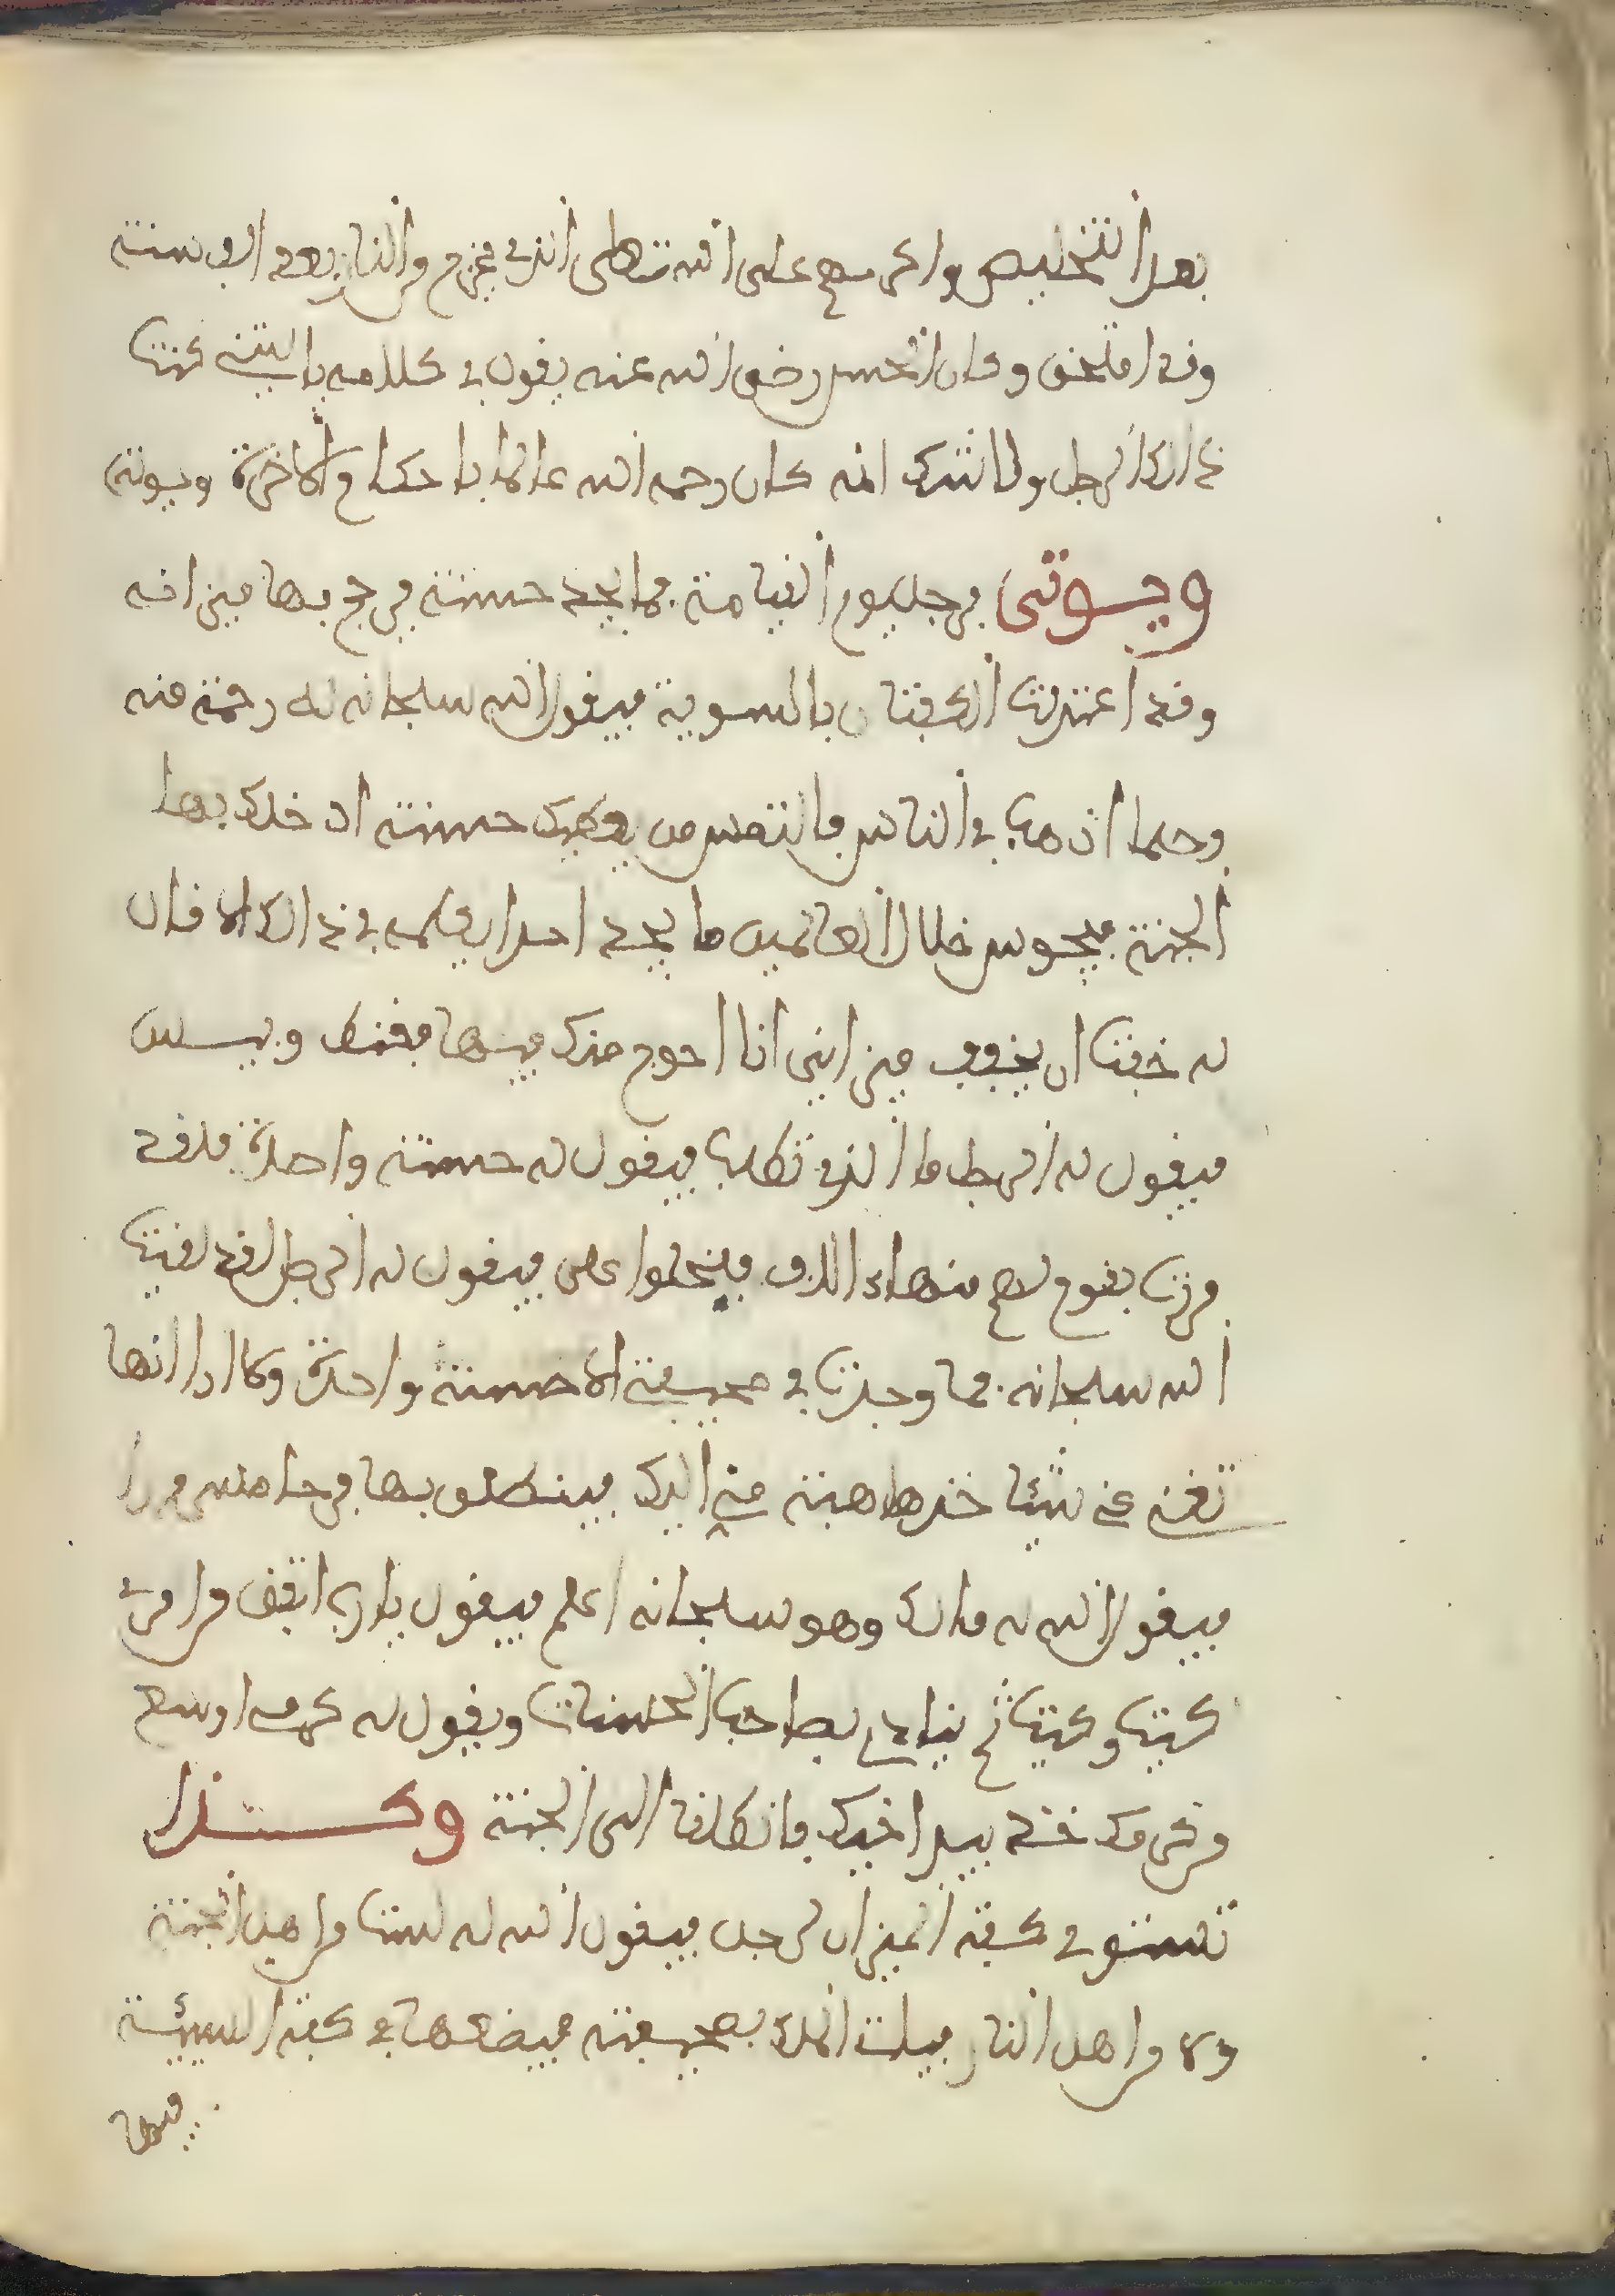 بعد التخليص واكرمهم على الله تعالى الذي يخرج من النار بعد الف سنة
وقد امتحق وكان الحسن رضي الله عنه يقول في كلامه ياليتني كنت
ذالك الرجل ولا شك انه كان رحمه الله عالما باحكام الاخرة ويوتى
ويوتى برجل يوم القيامة فما يجد حسنة يرجح بها ميزانه
وقد اعتدلت الكفتان بالسوية فيقول الله سبحانه له رحمة منه
وحلما اذهب في الناس فالتمس من يعطيك حسنة ادخلك بها
الجنة فيجوس خلال العالمين ما يجد احدا يكلمه في ذالك الا قال
له خفت ان يخف ميزاني انا احوج منك اليها فقنط ويئس
فيقول له الرجل ما الذي تطلب فيقول له حسنة واحدة فلقد
مررت بقوم لهم منها الاف فبخلوا على فيقول له الرجل لقد لقيت
الله سبحانه فما وجدت في صحيفتي الا حسنة واحدة وما ارا انها
تغنى عنى شيئا خذها هبة منى اليك فينطلق بها فرحا مسرورا
فيقول الله له مالك وهو سبحانه اعلم فيقول يارب اتفق من امرى
كيت وكيت ثم ينادى بصاحب الحسنات ويقول له كرمى اوسع
من كرمك خذ بيد اخيك فانطلقا الى الجنة وكذا
تستوي كفة الميزان لرجل فيقول الله له لست من اهل الجنة
ولا من اهل النار فيات الملك بصحيفة فيضعها في كفة السيئة
فيها